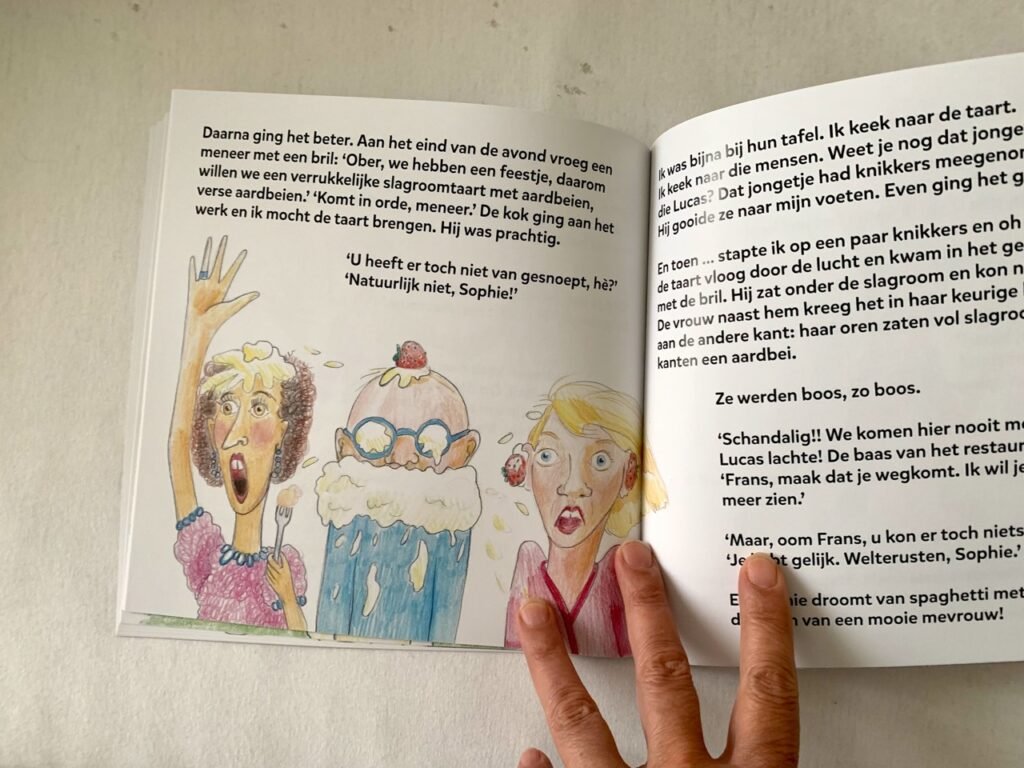 Daarna ging het beter. Aan het eind van de avond vroeg een
meneer met een bril: ‘Ober, we hebben een feestje, daarom
willen we een verrukkelijke slagroomtaart met aardbeien,
verse aardbeien.’ ‘Komt in orde, meneer.’ De kok ging aan het
werk en ik mocht de taart brengen. Hij was prachtig.
‘U heeft er toch niet van gesnoept, hè?’
‘Natuurlijk niet, Sophie!’
Ik was bijna bij hun tafel. Ik keek naar de taart.
Ik keek naar die mensen. Weet je nog dat jonge
die Lucas? Dat jongetje had knikkers meegenom
Hij gooide ze naar mijn voeten. Even ging het g
En toen ... stapte ik op een paar knikkers en oh
de taart vloog door de lucht en kwam in het ge
met de bril. Hij zat onder de slagroom en kon n
De vrouw naast hem kreeg het in haar keurige
aan de andere kant: haar oren zaten vol slagroo
kanten een aardbei.
Ze werden boos, zo boos.
‘Schandalig!! We komen hier nooit me
Lucas lachte! De baas van het restaur
‘Frans, maak dat je wegkomt. Ik wil je
meer zien.’
‘Maar, oom Frans, u kon er toch niets
gelijk. Welterusten, Sophie.’
droomt van spaghetti met
van een mooie mevrouw!